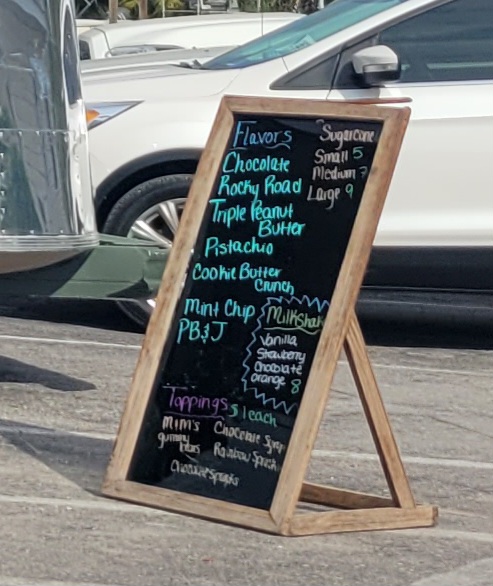 Flavors
Chocolate
Rocky Road
Triple Peanut
Butter
Pistachio
Cookie Butter
Crunch
Mint Chip
PB&J
Sugarcone
Small 5
Medium 7
Large 9
Milkshak
Vanilla
Strawberry
Chocolate
Orange 8
Toppings $1 each
M&M's
gummy
bears
Chocolate Syrup
Rainbow Sprink
Chocolate Sprinkles